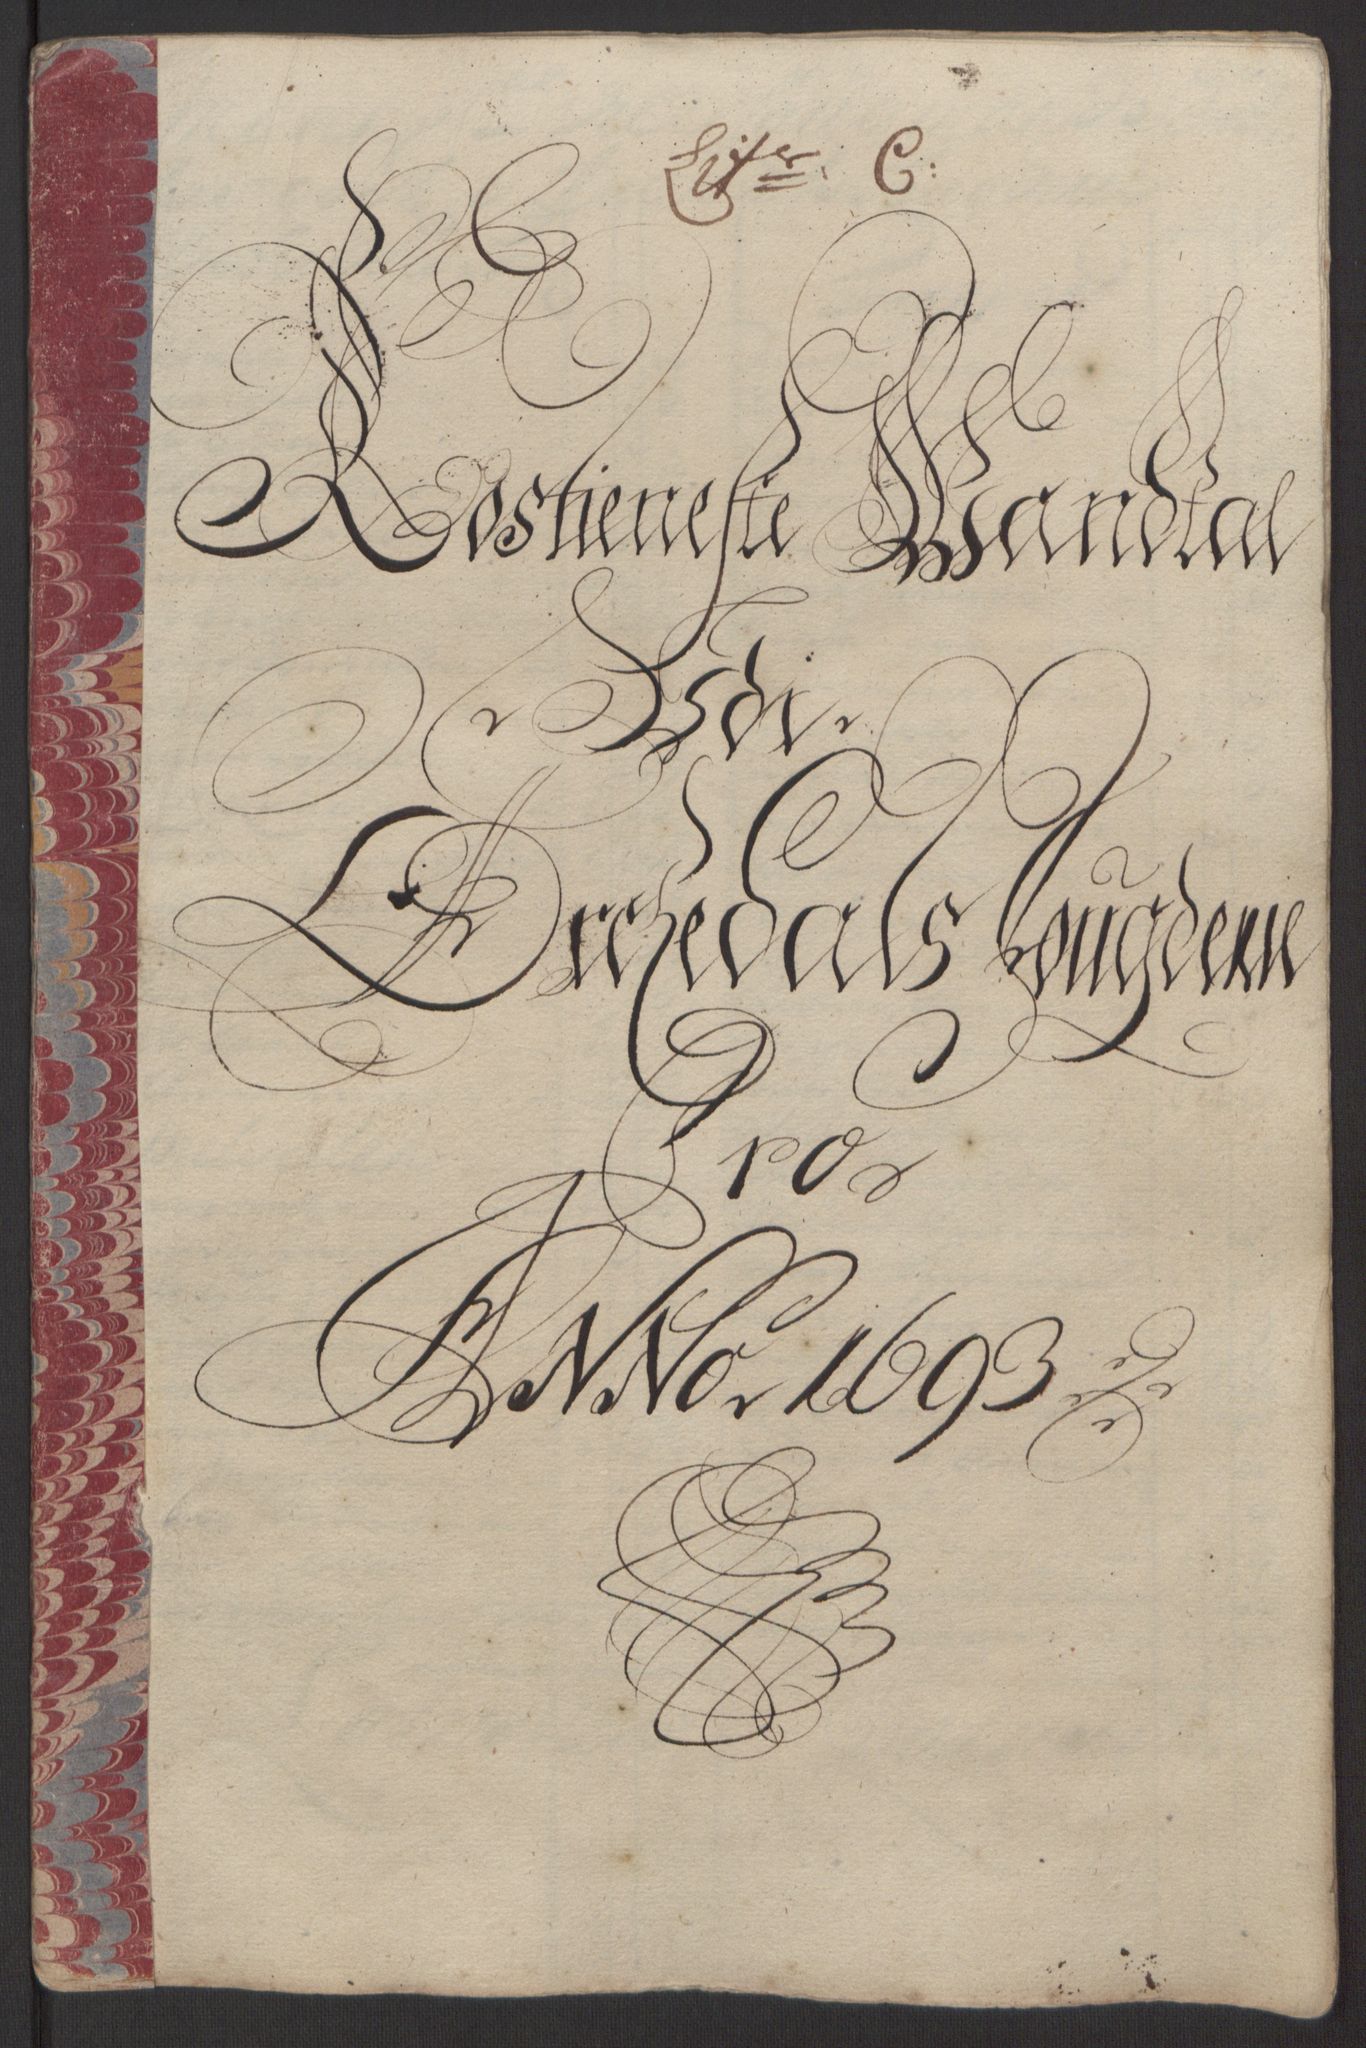 Liter: C:
Rostieneste Mandtal
Udi
Orchedals fougderie
Pro
ANNo 1693